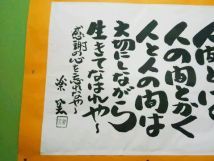 人間とい
人の間とかく
人と人の間は
大切にしながら
生きてなれや～
感謝の心を忘れなや～